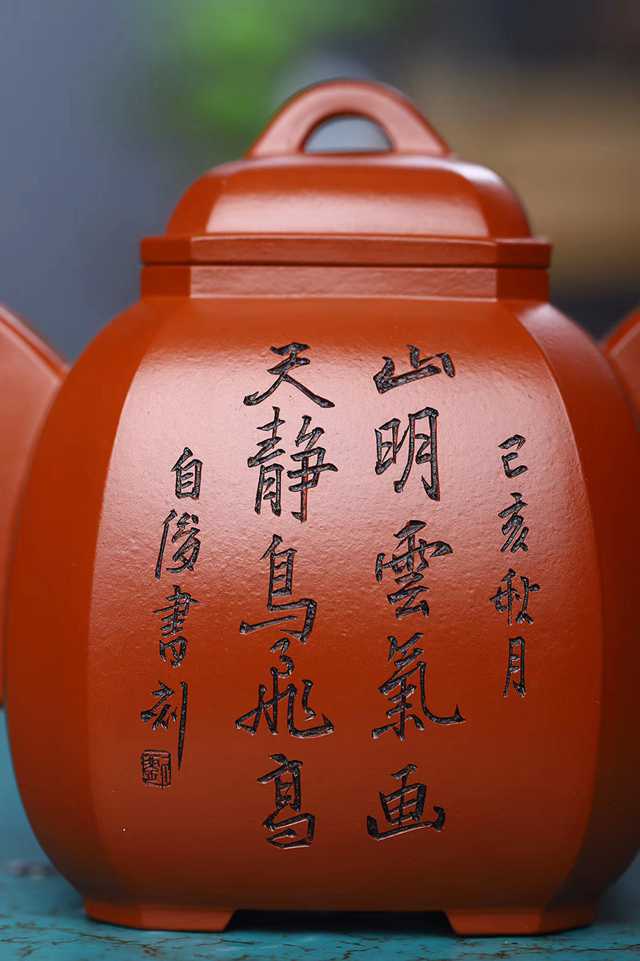 己亥秋月
山明雲氣画
天静鳥飛高
自俊書刻